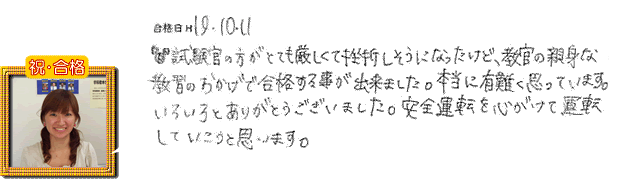 合格日 H19.10.11
試験官の方がとても厳しくて挫折しそうになったけど、教官の親身な
教習のおかげで合格する事が出来ました。本当に有難く思っています。
いろいろとありがとうございました。安全運転を心がけて運転
していこうと思います。
祝・合格